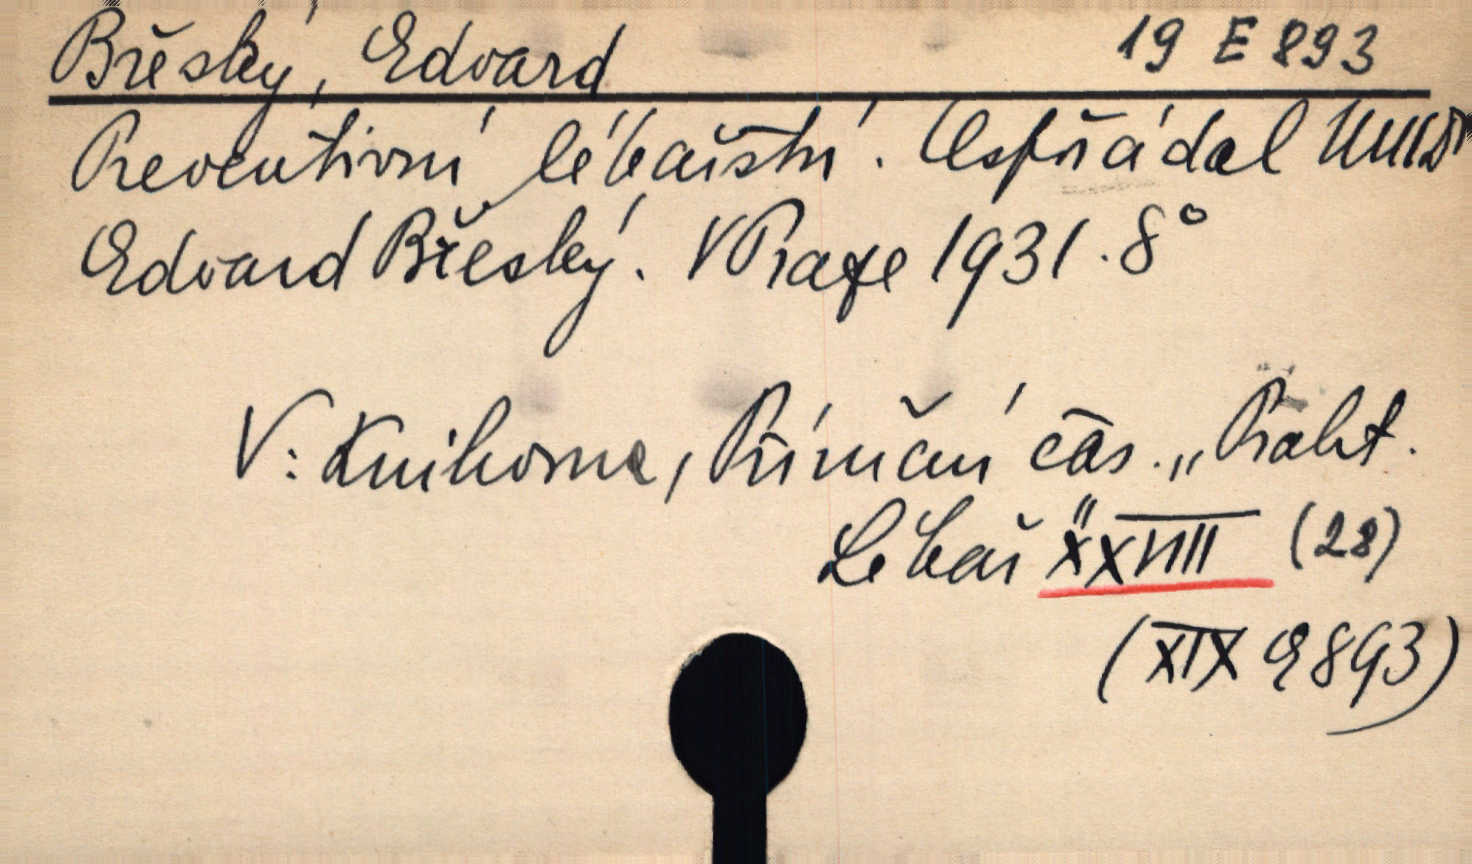 Břeský, Edvard 19 E 893
Preventivní lékařství. Uspořádal MUDr
Edvard Břeský. V Praze 1931. 8°
V: Knihovna, Příruční čas. „Prakt.
Lékař" XXVIII (28)
(XIX E 893)